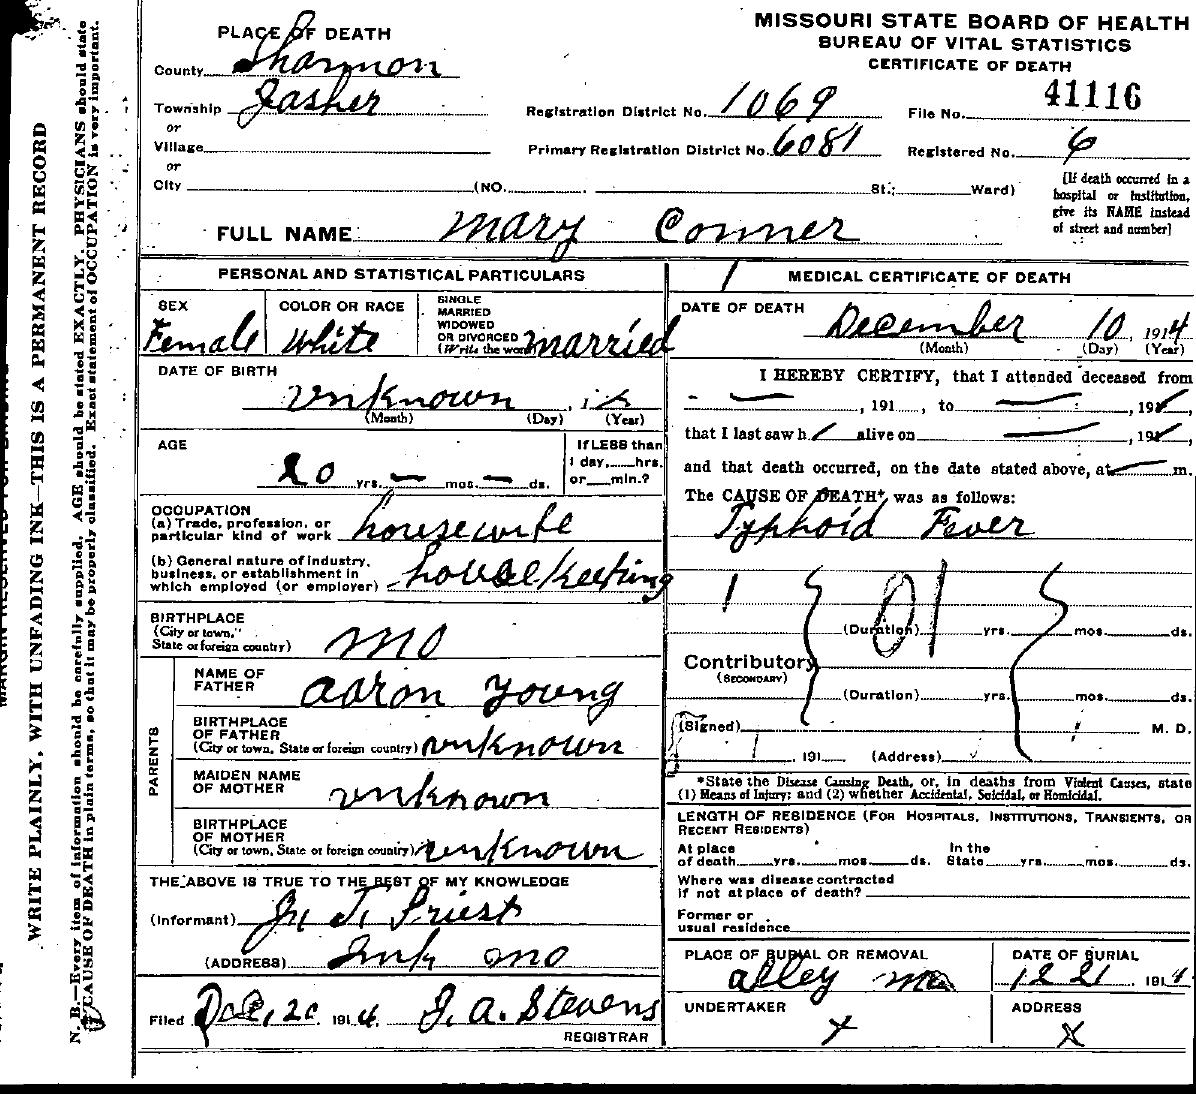 MISSOURI STATE BOARD OF HEALTH
BUREAU OF VITAL STATISTICS
CERTIFICATE OF DEATH
PLACE OF DEATH
County Shannon
Township Jasher
or
Village
or
City (NO. St.; Ward)
Registration District No. 1069
File No. 41116
Primary Registration District No. 6081
Registered No. 6
[If death occurred in a
hospital or institution,
give its NAME instead
of street and number]
FULL NAME Mary Conner
PERSONAL AND STATISTICAL PARTICULARS
SEX
Female
COLOR OR RACE
White
SINGLE
MARRIED
WIDOWED
OR DIVORCED
(Write the word) married
DATE OF BIRTH
unknown
(Month) (Day) (Year)
AGE
20 yrs. — mos. — ds.
If LESS than
1 day, hrs.
or min.?
OCCUPATION
(a) Trade, profession, or
particular kind of work housewife
(b) General nature of industry,
business, or establishment in
which employed (or employer) housekeeping
BIRTHPLACE
(City or town,
State or foreign country) mo
PARENTS
NAME OF
FATHER Aaron Young
BIRTHPLACE
OF FATHER
(City or town, State or foreign country) unknown
MAIDEN NAME
OF MOTHER unknown
BIRTHPLACE
OF MOTHER
(City or town, State or foreign country) unknown
THE ABOVE IS TRUE TO THE BEST OF MY KNOWLEDGE
(Informant) T. Priest
(ADDRESS) Ink mo
Filed Dec, 20 1914 J. A. Stevens
REGISTRAR
MEDICAL CERTIFICATE OF DEATH
DATE OF DEATH December 10, 1914
(Month) (Day) (Year)
I HEREBY CERTIFY, that I attended deceased from
— , 191 , to — , 191 ,
that I last saw h alive on — , 191 ,
and that death occurred, on the date stated above, at — m.
The CAUSE OF DEATH* was as follows:
Typhoid Fever
1 01
(Duration) yrs. mos. ds.
Contributory
(SECONDARY)
(Duration) yrs. mos. ds.
(Signed) M. D.
, 191 (Address)
*State the Disease Causing Death, or, in deaths from Violent Causes, state
(1) Means of Injury; and (2) whether Accidental, Suicidal, or Homicidal.
LENGTH OF RESIDENCE (FOR HOSPITALS, INSTITUTIONS, TRANSIENTS, OR
RECENT RESIDENTS)
At place
of death yrs. mos. ds.
In the
State yrs. mos. ds.
Where was disease contracted
if not at place of death?
Former or
usual residence
PLACE OF BURIAL OR REMOVAL
alley mo
DATE OF BURIAL
12 21 1914
UNDERTAKER
x
ADDRESS
X
WRITE PLAINLY, WITH UNFADING INK—THIS IS A PERMANENT RECORD
N. B.—Every item of information should be carefully supplied. AGE should be stated EXACTLY. PHYSICIANS should state
CAUSE OF DEATH in plain terms, so that it may be properly classified. Exact statement of OCCUPATION is very important.